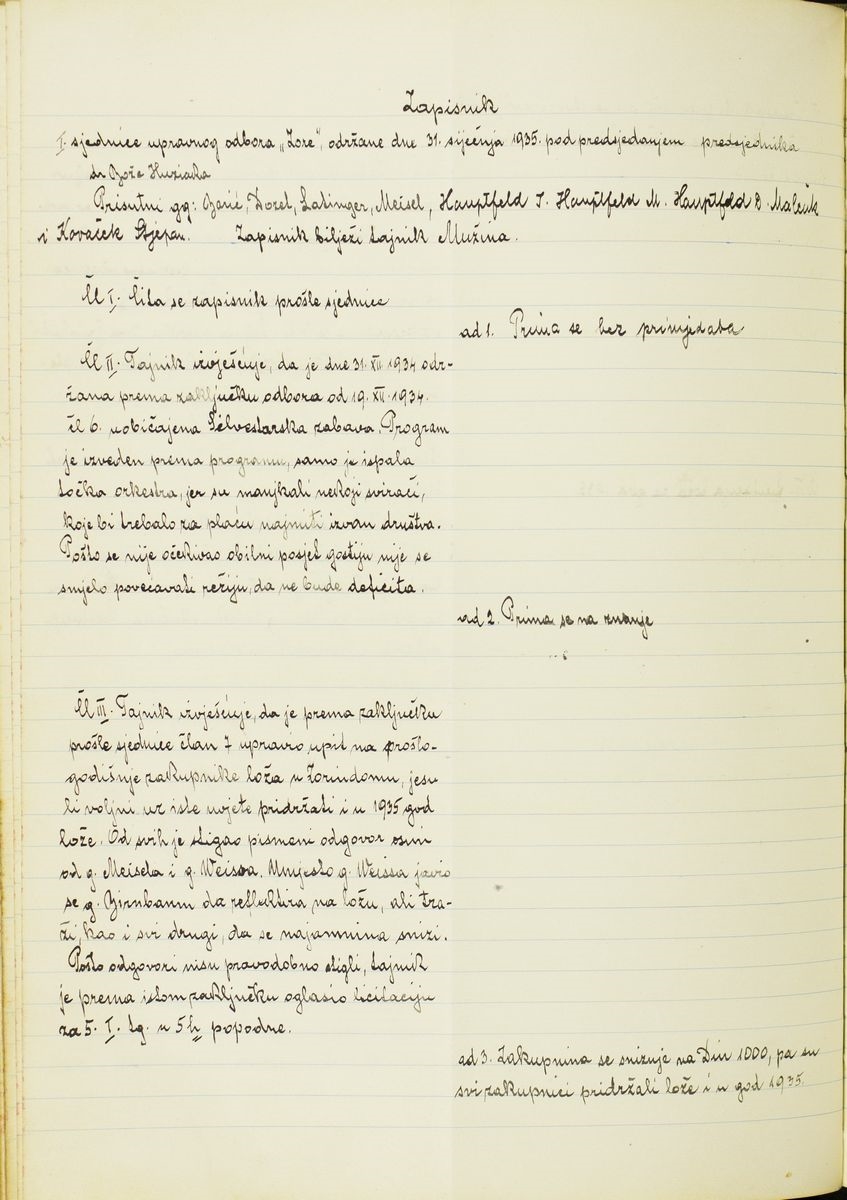 Zapisnik
I. sjednice upravnog odbora „Zore", održane dne 31. siječnja 1935. pod predsjedanjem predsjednika
dr Bože Huziaka
Prisutni gg: Barić, Dozet, Latinger, Meisel, Hauptfeld J. Hauptfeld M. Hauptfeld D. Malčik
i Kovaček Stjepan. Zapisnik bilježi tajnik Mužina.
Čl I. Čita se zapisnik prošle sjednice
ad 1. Prima se bez primjedaba
Čl II. Tajnik izvješćuje, da je dne 31. XII 1934 odr-
žana prema zaključku odbora od 19. XII. 1934.
čl 6. uobičajena Silvestarska zabava. Program
je izveden prema programu, samo je ispala
točka orkestra, jer su manjkali nekoji svirači,
koje bi trebalo za plaću najmiti izvan društva.
Pošto se nije očekivao obilni posjet gostiju nije se
smjelo povećavati režiju, da ne bude deficita.
ad 2. Prima se na znanje
Čl III. Tajnik izvješćuje, da je prema zaključku
prošle sjednice član 7 upravio upit na prošlo-
godišnje zakupnike loža u Zorindomu, jesu
li voljni uz iste uvjete pridržati i u 1935 god
lože. Od svih je stigao pismeni odgovor osim
od g. Meisela i g. Weissa. Umjesto g. Weissa javio
se g. Birnbaum da reflektira na ložu, ali tra-
ži, kao i svi drugi, da se najamnina snizi.
Pošto odgovori nisu pravodobno stigli, tajnik
je prema istom zaključku oglasio licitaciju
za 5. I. tg. u 5 h popodne.
ad 3. Zakupnina se snizuje na Din 1000, pa su
svi zakupnici pridržali lože i u god 1935.